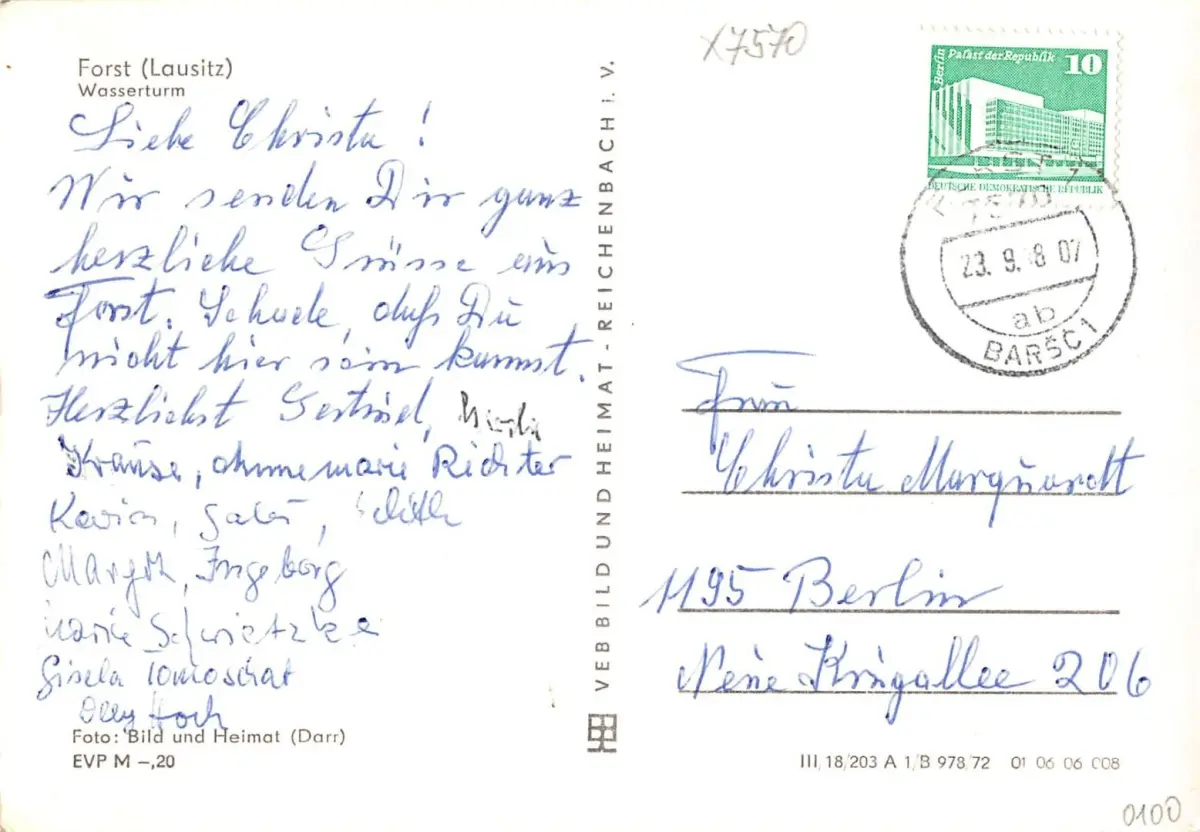 Forst (Lausitz)
Wasserturm
Liebe Christa!
Wir senden Dir ganz
herzliche Grüsse aus
Forst. Schade, daß Du
nicht hier sein kannst.
Herzlichst Gertrud,
Krause, Annemarie Richter
Karin,
Margot, Ingeborg
Schwietzke
Gisela Tomoschat
Olly Hoch
Foto: Bild und Heimat (Darr)
EVP M –,20
VEB BILD UND HEIMAT - REICHENBACH i. V.
X7570
Berlin Palast der Republik 10
DEUTSCHE DEMOKRATISCHE REPUBLIK
23. 9. 8 07
ab
BARŠĆ 1
Frau
Christa Marquardt
1195 Berlin
Neue Krugallee 206
III/18/203 A 1/B 978/72 01 06 06 008
0100